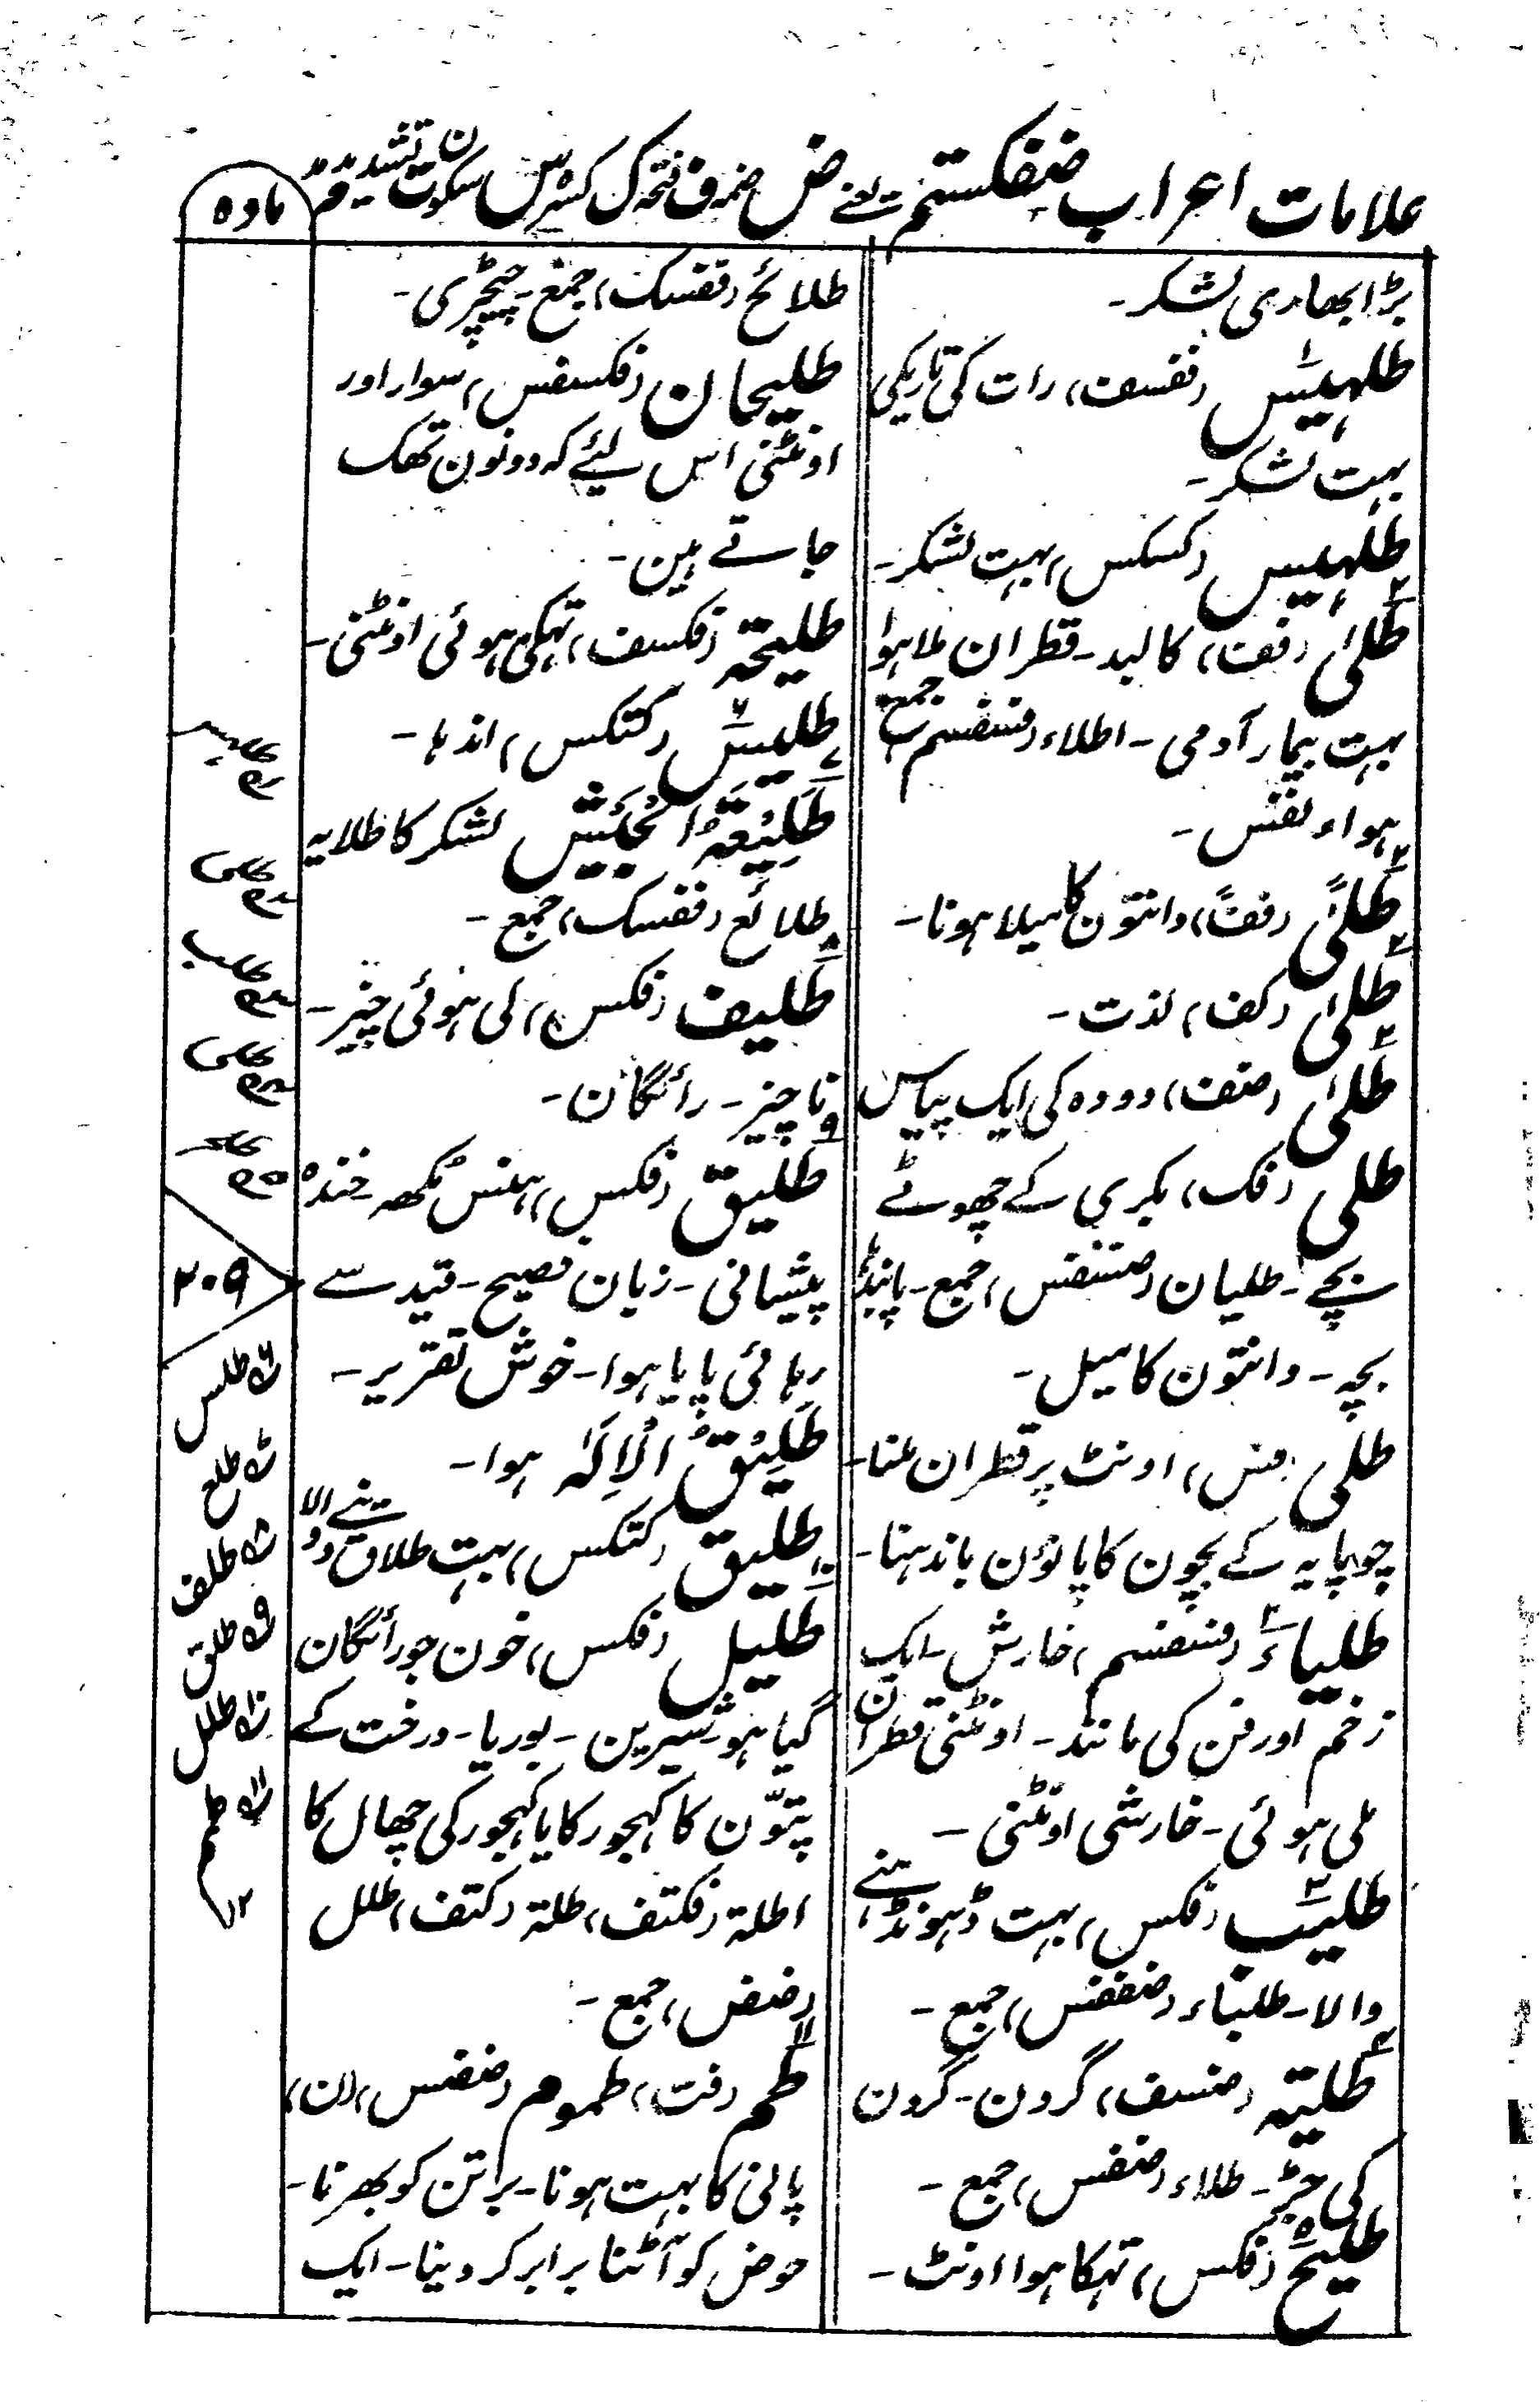 علامات اعراب ضفکستم یعنے ض ضمہ ف فتحہ ک کسرہ س سکون ت تشدید م مد
مادہ
بڑا بھاری لشکر۔
طلہیس (فسف) رات کی تاریکی
بہت لشکر۔
طلہیس (کسکس) بہت لشکر۔
طلیٰ (فف) کالبد۔ قطران ملا ہوا
بہت بیمار آدمی۔ اطلاء (فسفسم) جمع
ہواء نفس۔
طلیً (ففاً) دانتوں کا میلا ہونا۔
طلیٰ (کف) لذت۔
طلیٰ (ضف) دودہ کی ایک پیاس
طلی (فک) بکری کے چھوٹے
بچے۔ طلیان (ضسفس) جمع۔
بچہ۔ دانتون کا میل۔
طلی (فس) اونٹ پر قطران ملنا۔
چوپایہ کے بچون کا پانون باندہنا۔
طلیاء (فسفسم) خارش۔ ایک
زخم اور فن کی مانند۔ اونٹنی قطران
ملی ہوئی۔ خارشی اونٹنی۔
طلیب (فکس) بہت ڈہونڈہنے
والا۔ طلباء (ضففس) جمع۔
طلیۃ (ضسف) گردن۔ گردن
کی جڑ۔ طلاء (ضفس) جمع۔
طلیح (فکس) تہکا ہوا اونٹ۔
طلائح (ففسک) جمع۔ چیچڑی۔
طلیحان (فکسفس) سوار اور
اونٹنی اس لیئے کہ دونون تھک
جاتے ہین۔
طلیحۃ (فکسف) تہکی ہوئی اونٹنی۔
طلیس (کتکس) اندہا۔
طَلِیْعَۃُ الْجَیْش لشکر کا طلایہ
طلائع (ففسک) جمع۔
طلیف (فکس) لی ہوئی چیز۔
ناچیز۔ رائگان۔
طلیق (فکس) ہنس مُکھہ خندہ
پیشانی۔ زبان فصیح۔ قید سے
رہائی پایا ہوا۔ خوش تقریر۔
طَلِیْقُ الْاِلٰہ ہوا۔
طلیق (کتکس) بہت طلاق دینے والا
طلیل (فکس) خون جو رائگان
گیا ہو شیرین۔ بوریا۔ درخت کے
پتّون کا کہجور کا یا کہجور کی چھال کا
اطلۃ (فکتف) طلۃ (کتف) طلل
(ضض) جمع۔
طم (فت) طموم (ضضس) (ن)
پانی کا بہت ہونا۔ برتن کو بھرنا۔
حوض کو آٹنا برابر کر دینا۔ ایک
۲۰۹
۶ طلس
۷ طلع
۸ طلف
۹ طلق
۱۰ طلل
۱۱ طم
۱۲